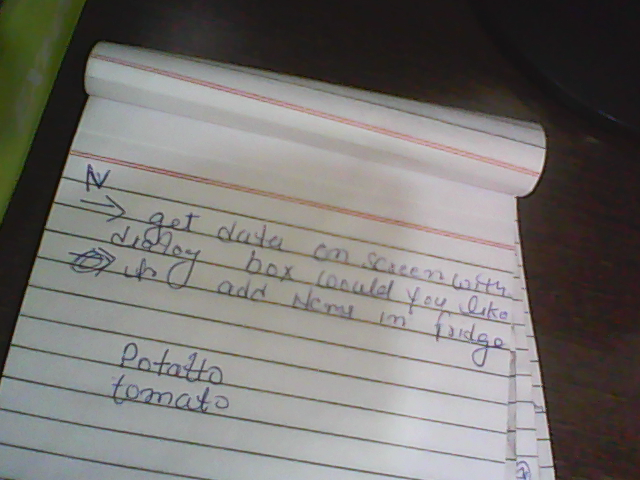 N
→ get data on screen with
dialog box would you like
to add items in fridge
Potatto
tomato